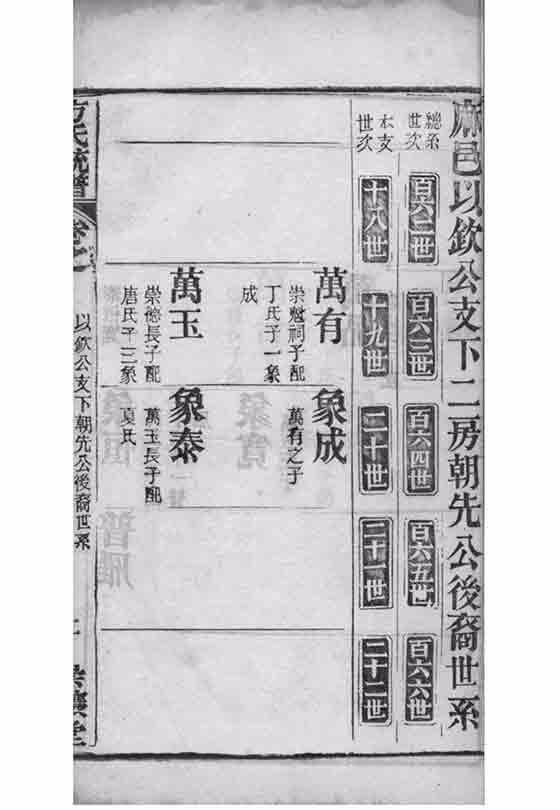 麻邑以欽公支下二房朝先公後裔世系
總系世次
百六二世
百六三世
百六四世
百六五世
百六六世
本支世次
十八世
十九世
二十世
二十一世
二十二世
萬有
崇魁祠子配
丁氏子一象
成
象成
萬有之子
萬玉
崇德長子配
唐氏子三象
象泰
萬玉長子配
夏氏
方氏統譜
以欽公支下朝先公後裔世系